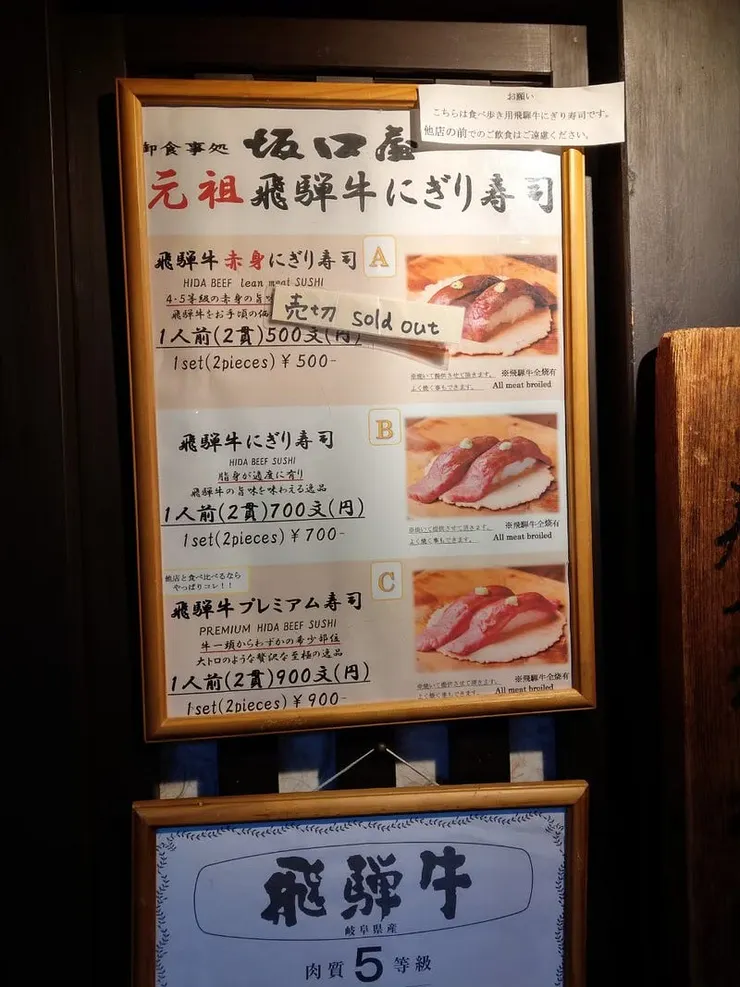 お願い
こちらは食べ歩き用飛騨牛にぎり寿司です。
他店の前でのご飲食はご遠慮ください。
御食事処 坂口屋
元祖飛騨牛にぎり寿司
飛騨牛赤身にぎり寿司 A
HIDA BEEF lean meat SUSHI
4・5等級の赤身の旨味
飛騨牛をお手頃の価
売切 sold out
1人前(2貫)500文(円)
1set(2pieces)¥500-
※焼いて提供させて頂きます。
よく焼く事もできます。
※飛騨牛全焼有
All meat broiled
飛騨牛にぎり寿司 B
HIDA BEEF SUSHI
脂身が適度に有り
飛騨牛の旨味を味わえる逸品
1人前(2貫)700文(円)
1set(2pieces)¥700-
よく焼く事もできます。
※飛騨牛全焼有
All meat broiled
他店と食べ比べるなら
やっぱりコレ!!
飛騨牛プレミアム寿司 C
PREMIUM HIDA BEEF SUSHI
牛一頭からわずかの希少部位
大トロのような贅沢な至極の逸品
1人前(2貫)900文(円)
1set(2pieces)¥900-
よく焼く事もできます。
※飛騨牛全焼有
All meat broiled
飛騨牛
岐阜県産
肉質5等級